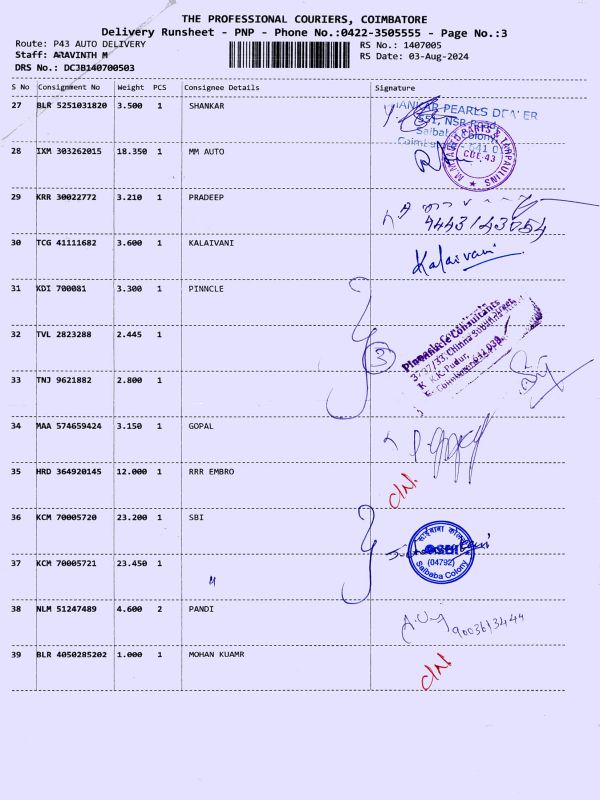 THE PROFESSIONAL COURIERS, COIMBATORE
Delivery Runsheet - PNP - Phone No.:0422-3505555 - Page No.:3
Route: P43 AUTO DELIVERY
RS No.: 1407005
Staff: ARAVINTH M
RS Date: 03-Aug-2024
DRS No.: DCJB140700503
S No Consignment No Weight PCS Consignee Details Signature
27 BLR 5251031820 3.500 1 SHANKAR
PEARLS
551, NSR
28 IXM 303262015 18.350 1 MM AUTO
PARTS & TARPAULINS
CBE.43
29 KRR 30022772 3.210 1 PRADEEP
9443143054
30 TCG 41111682 3.600 1 KALAIVANI
Kalaivani
31 KDI 700081 3.300 1 PINNCLE
32 TVL 2823288 2.445 1
3
Pinnacle Consultants
K.K. Pudur,
33 TNJ 9621882 2.800 1
34 MAA 574659424 3.150 1 GOPAL
35 HRD 364920145 12.000 1 RRR EMBRO
36 KCM 70005720 23.200 1 SBI
SBI
(04792)
Saibaba Colony
37 KCM 70005721 23.450 1
38 NLM 51247489 4.600 2 PANDI
39 BLR 4050285202 1.000 1 MOHAN KUAMR